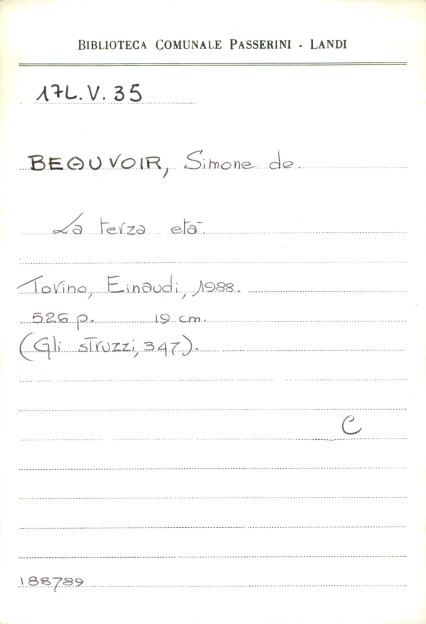 BIBLIOTECA COMUNALE PASSERINI - LANDI
17L.V.35
BEAUVOIR, Simone de.
La terza età.
Torino, Einaudi, 1988.
526 p. 19 cm.
(Gli struzzi, 347).
C
188789